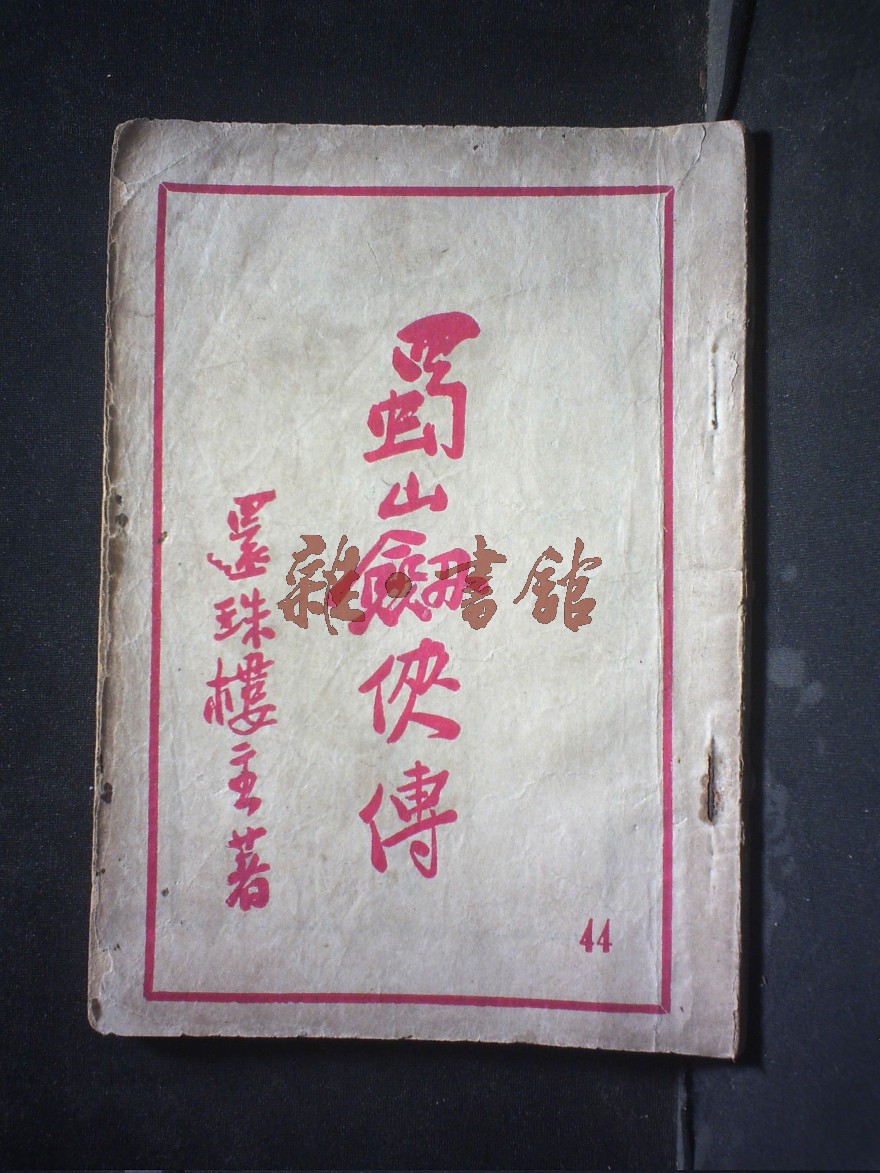 蜀山劔俠傳
還珠樓主著
44
雜·書館